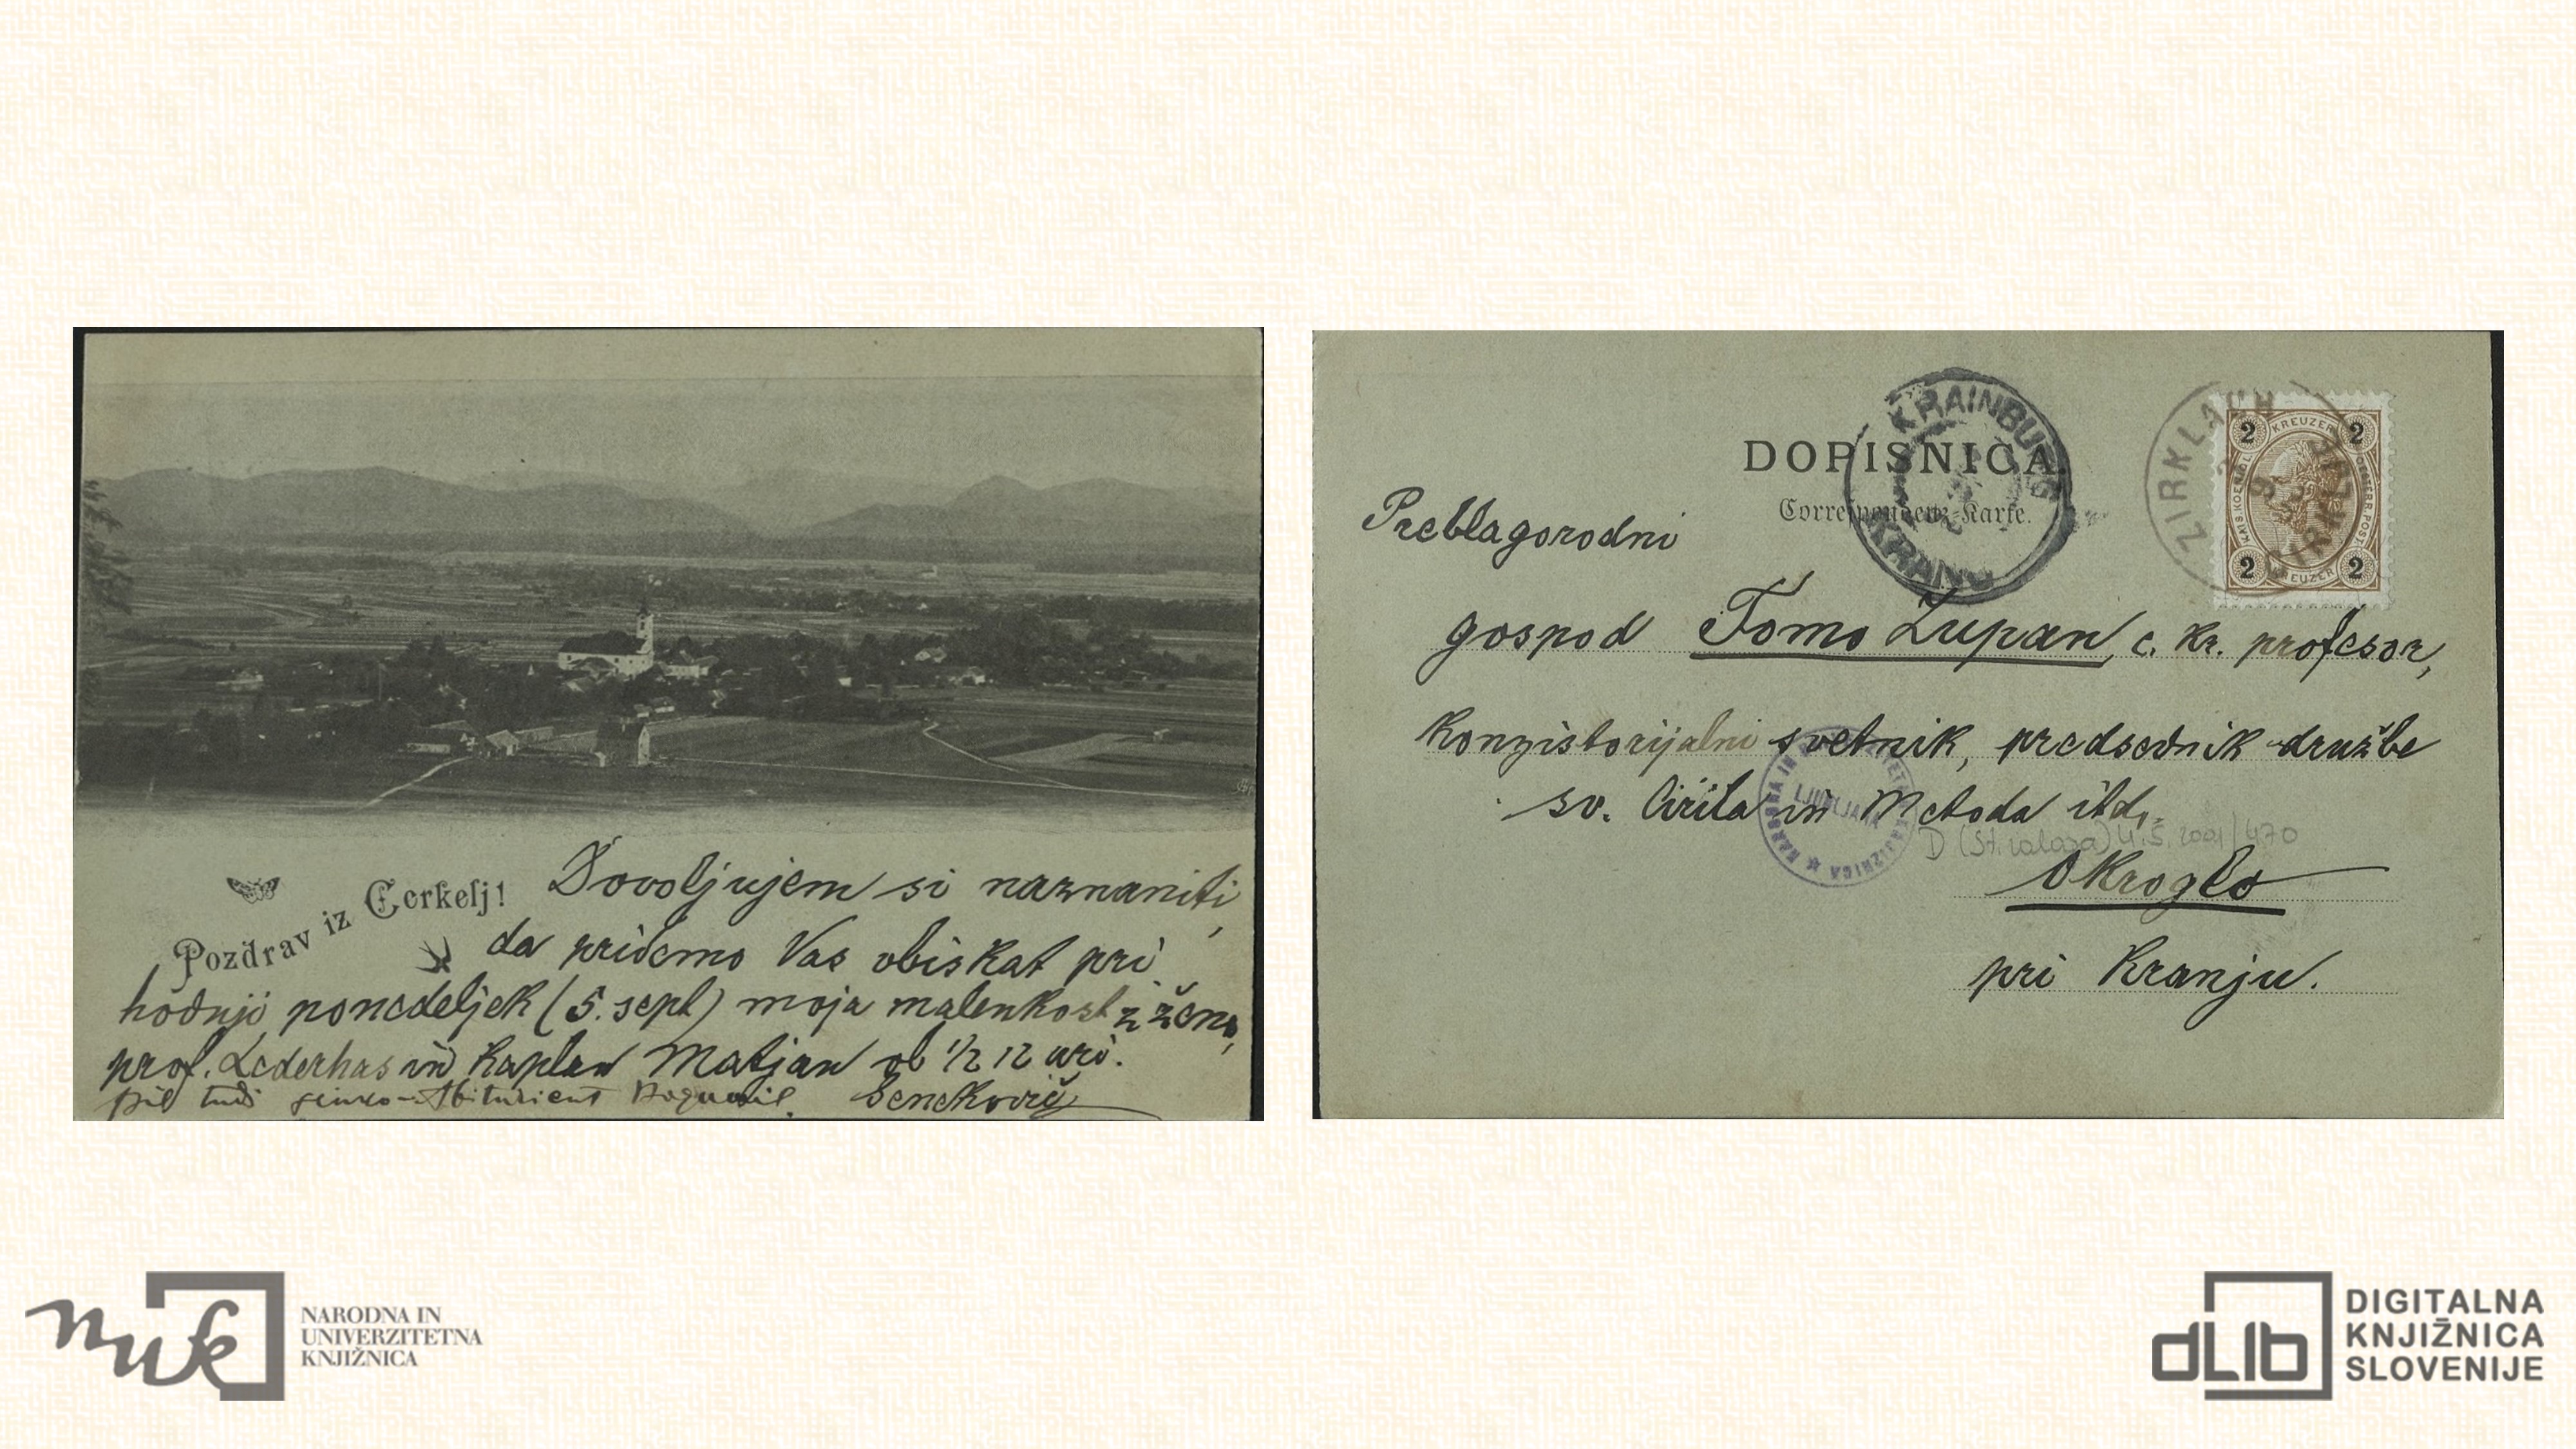 Pozdrav iz Cerkelj!
Dovoljujem si naznaniti,
da pridemo Vas obiskat pri
hodnji ponedeljek (5. sept) moja malenkost z ženo,
prof. Lederhas in kaplan Matjan ob 1/2 12 uri.
tudi sinko-Abiturient Bogumil. Senekovič
DOPISNICA.
Correspondenz-Karte.
KRAINBURG
KRANJ
ZIRKLACH
2 KREUZER 2
2 KREUZER 2
Preblagorodni
gospod Tomo Zupan, c. kr. profesor,
konzistorijalni svetnik, predsednik družbe
sv. Cirila in Metoda itd.
NARODNA IN UNIVERZITETNA KNJIŽNICA
LJUBLJANA
Okroglo
pri Kranju.
nuk
NARODNA IN
UNIVERZITETNA
KNJIŽNICA
dLib
DIGITALNA
KNJIŽNICA
SLOVENIJE